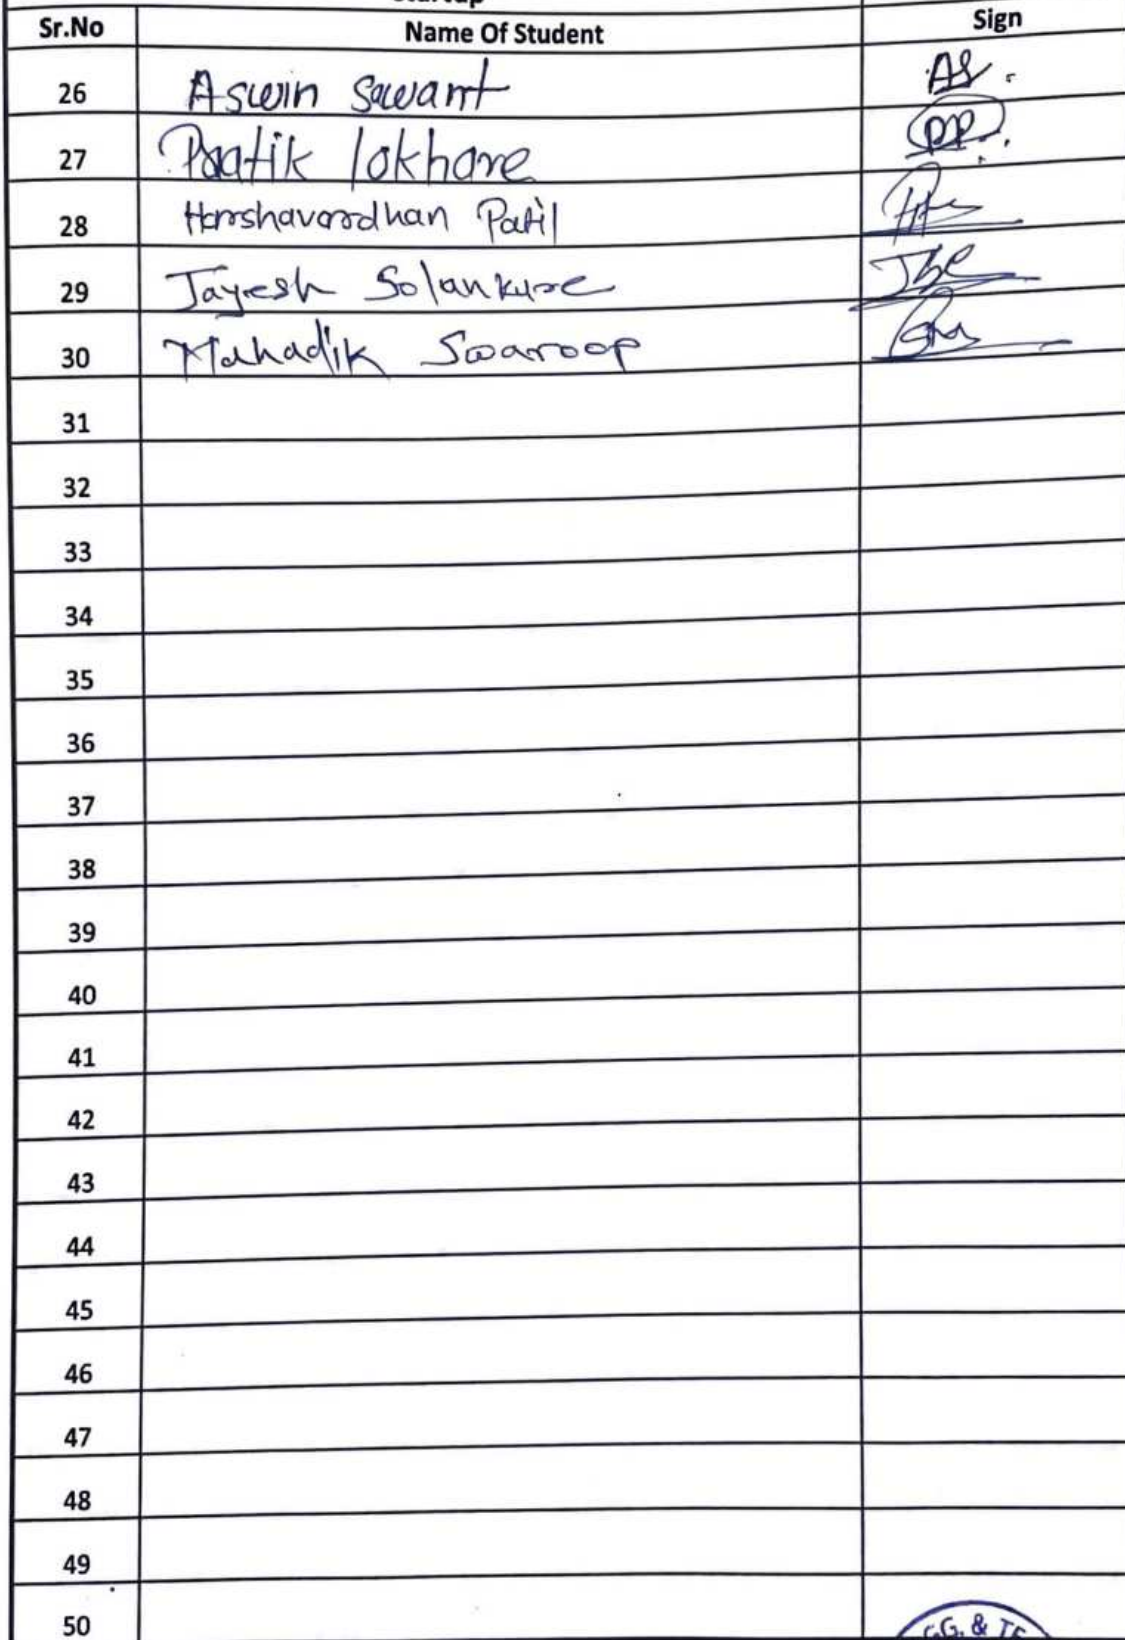 Sr.No Name Of Student Sign
26 Aswin Sawant AS.
27 Pratik lokhare PP.
28 Harshavardhan Patil
29 Jayesh Solankure
30 Mahadik Swaroop
31
32
33
34
35
36
37
38
39
40
41
42
43
44
45
46
47
48
49
50
GG. & TE